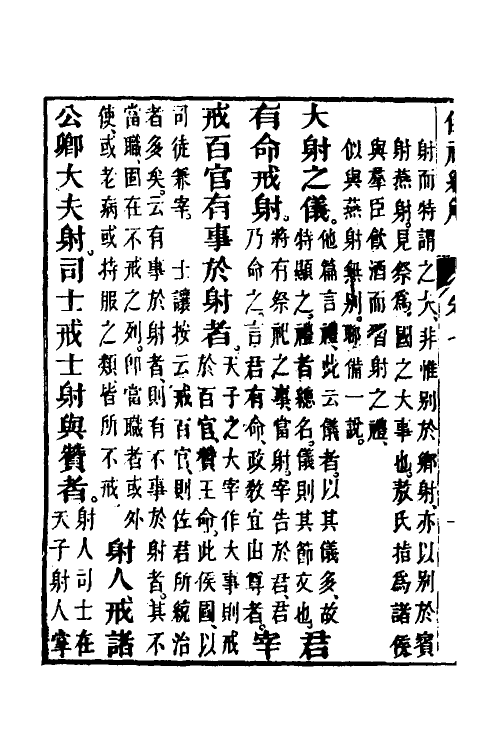 射而特謂之大、非惟別於鄉射、亦以別於賓
射燕射。見祭爲國之大事也。敖氏指爲諸侯
與羣臣飲酒而習射之禮、
似與燕射無別。聊備一說。
大射之儀。他篇言禮、此云儀者、以其儀多、故
特顯之。禮者總名。儀則其節文也。君
有命戒射。將有祭祀之事、當射。宰告於君、君
乃命之、言君有命、政敎宜由尊者。宰
戒百官有事於射者。天子之大宰作大事、則戒
於百官、贊王命、此侯國、以
司徒兼宰。 士讓按云戒百官、則佐君所統治
者多矣。云有事於射者、則有不事於射者。其不
當職、固在不戒之列。卽當職者、或外
使、或老病、或持服之類、皆所不戒。射人戒諸
公卿大夫射。司士戒士射與贊者。射人司士在
天子射人掌